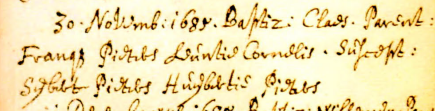 30. Novemb: 1685. Baptiz: Claes. Parent:
Frans Pieters Leuntie Cornelis. Suscept:
Sijbert Pieters Huijbertie Pieters